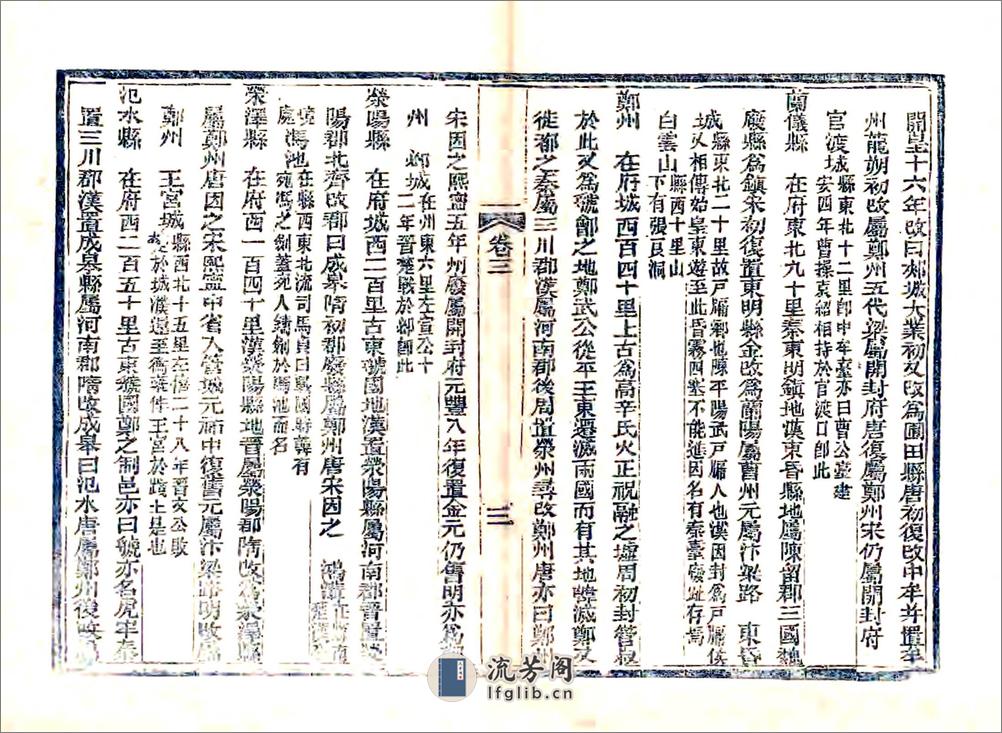 開皇十六年改曰郟城大業初又改為圃田縣唐初復改中牟并置牟
州龍朔初改屬鄭州五代梁屬開封府唐復屬鄭州宋仍屬開封府
官渡城縣東北十二里卽中牟臺亦曰曹公臺建
安四年曹操袁紹相持於官渡口卽此
蘭儀縣　在府東北九十里秦東明鎮地漢東昏縣地屬陳留郡三國魏
廢縣為鎮宋初復置東明縣金改為蘭陽屬曹州元屬汴梁路　東昏
城縣東北二十里故戶牖鄉也陳平陽武戶牖人也漢因封為戶牖侯
又相傳始皇東遊至此昏霧四塞不能進因名有秦臺廢趾存焉
白雲山縣西十里山
下有張良洞
鄭州　在府城西百四十里上古為高辛氏火正祝融之墟周初封管叔
於此又為虢鄶之地鄭武公從平王東遷滅兩國而有其地韓滅鄭又
徙都之秦屬三川郡漢屬河南郡後周置滎州尋改鄭州唐亦曰鄭州
卷三
三
宋因之熙寧五年州廢屬開封府元豐八年復置金元仍舊明亦為
州　邲城在州東六里左宣公十
二年晉楚戰於邲卽此
滎陽縣　在府城西二百里古東虢國地漢置滎陽縣屬河南郡晉置滎
陽郡北齊改郡曰成皋隋初郡廢縣屬鄭州唐宋因之　鴻溝在
馮池在縣西北流司馬貞曰
宛馮之劍蓋宛人鑄劍於馮池而名
滎澤縣　在府西一百四十里漢滎陽縣地晉屬滎陽郡隋改為滎澤縣
屬鄭州唐因之宋熙寧中省入管城元祐中復舊元屬汴梁路明改屬
鄭州　王宮城縣西北十五里左僖二十八年晉文公敗
於城濮還至衡雍作王宮於踐土是也
汜水縣　在府西二百五十里古東虢國鄭之制邑亦曰虢亦名虎牢秦
置三川郡漢置成皋縣屬河南郡隋改成皋曰汜水唐屬鄭州後
流芳阁
lfglib.cn